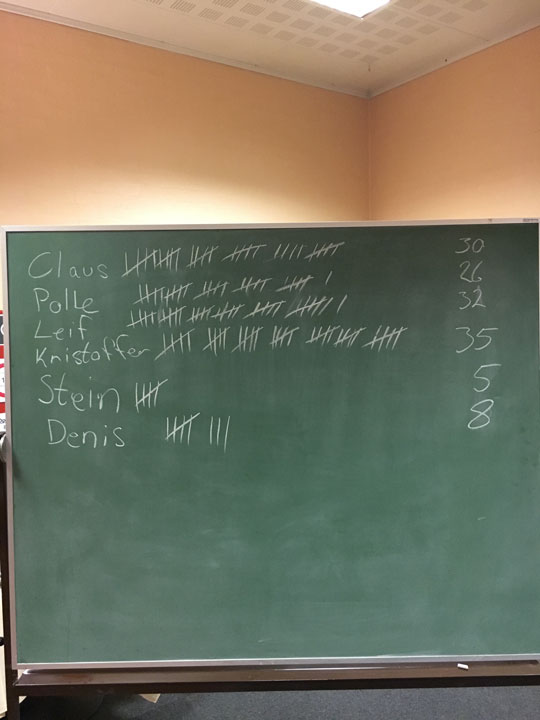 Claus 30
Polle 26
Leif 32
Kristoffer 35
Stein 5
Denis 8